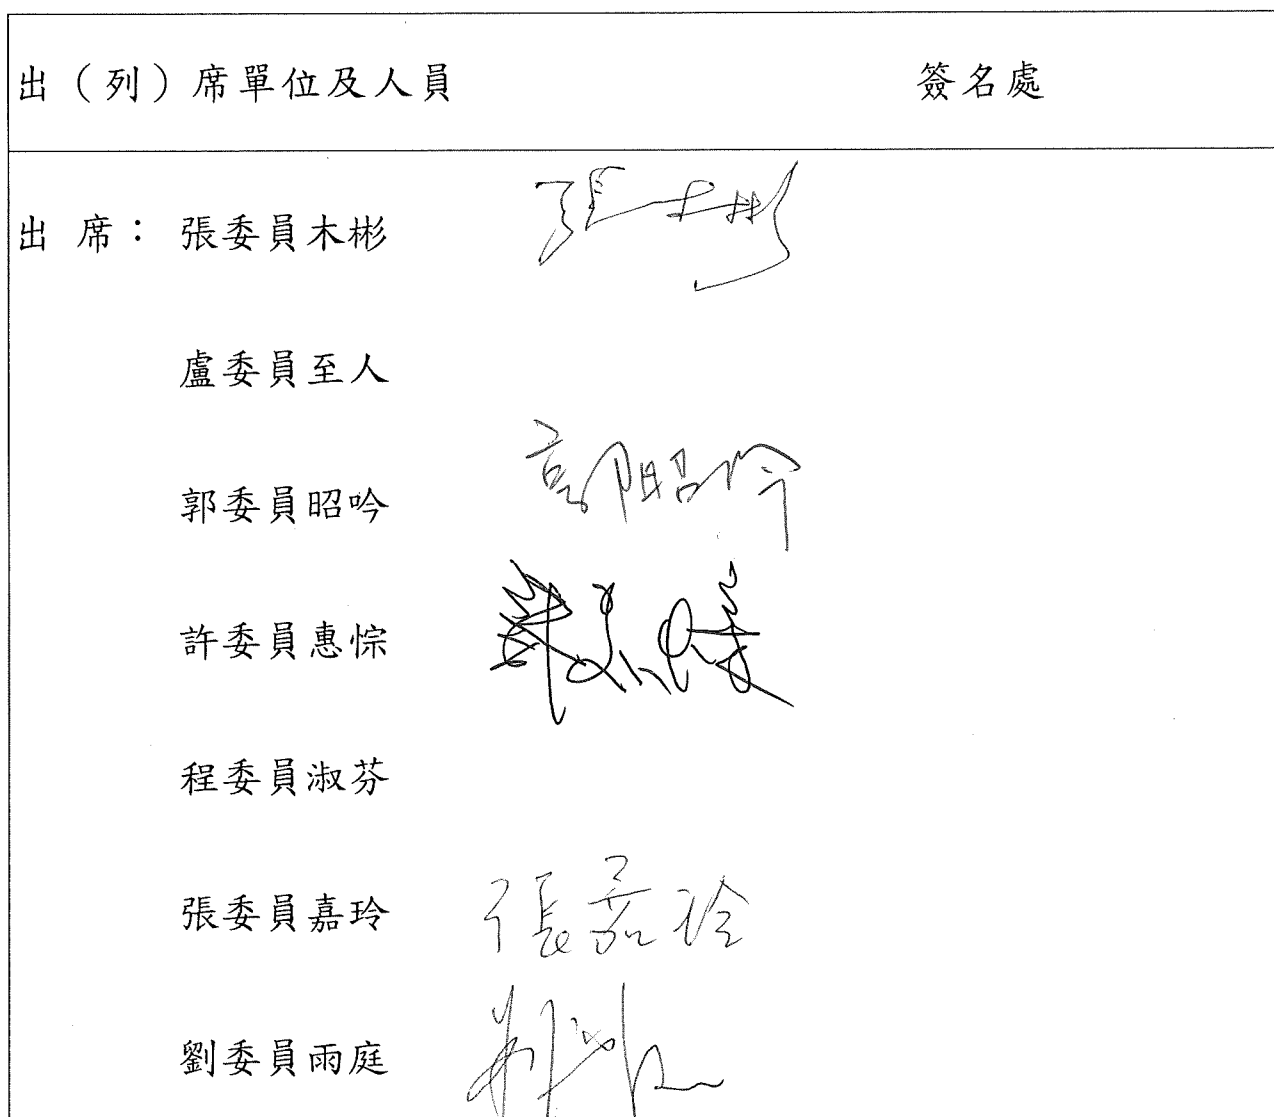 出（列）席單位及人員 簽名處
出 席： 張委員木彬 張木彬
盧委員至人
郭委員昭吟 郭昭吟
許委員惠悰
程委員淑芬
張委員嘉玲 張嘉玲
劉委員雨庭